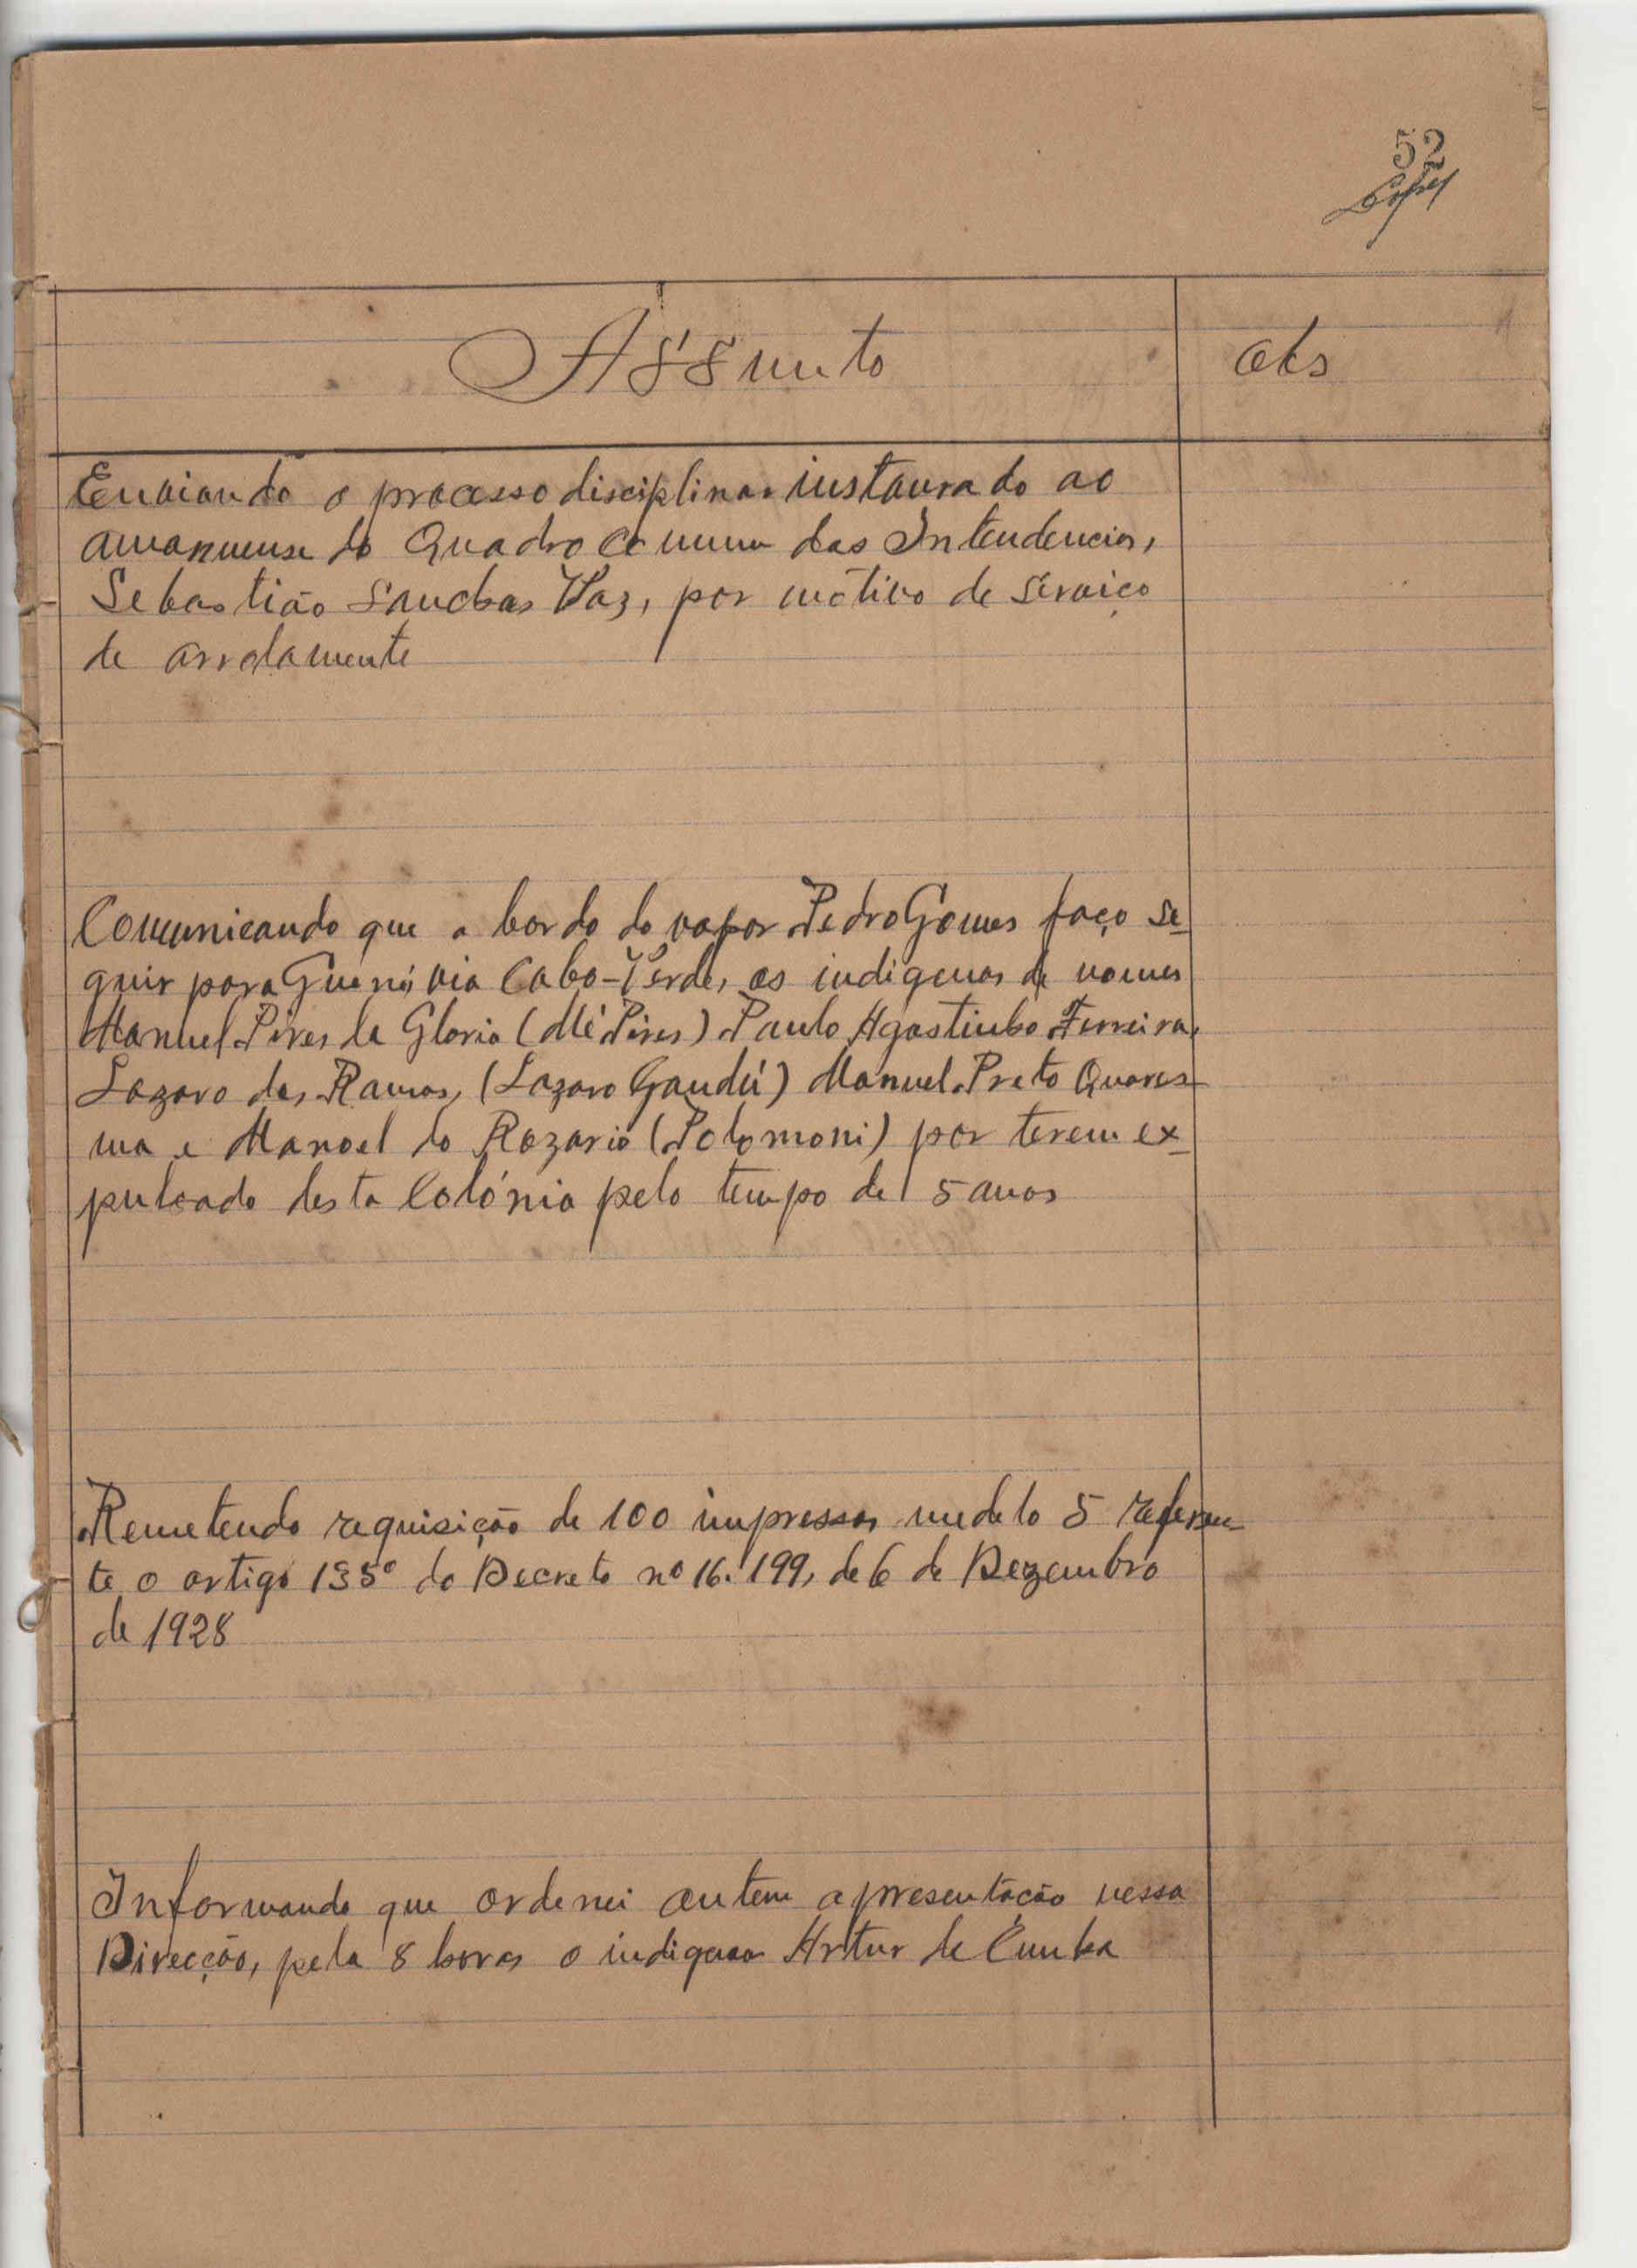 52
Assunto
Obs
Enviando o processo disciplinar instaurado ao
amanuense do Quadro Comum das Intendencias,
Sebastião Sanches Vaz, por mótivo de serviço
de arrolamento
Comunicando que a bordo do vapor Pedro Gomes faço se
guir para Guiné, via Cabo-Verde, os indigenas de nomes
Manuel Pires da Gloria (Mé Pires) Paulo Agostinho Ferreira,
Lazaro dos Ramos, (Lazaro Gandú) Manuel Preto Quares
ma e Manoel do Rozario (Polomoni) por terem ex
pulsado desta Colónia pelo tempo de 5 anos
Remetendo requisição de 100 impressos modelo 5 referen
te o artigo 135º do Decreto nº 16.199, de 6 de Dezembro
de 1928
Informando que ordenei ontem apresentação nessa
Direcção, pela 8 horas o indigena Artur de Cunha